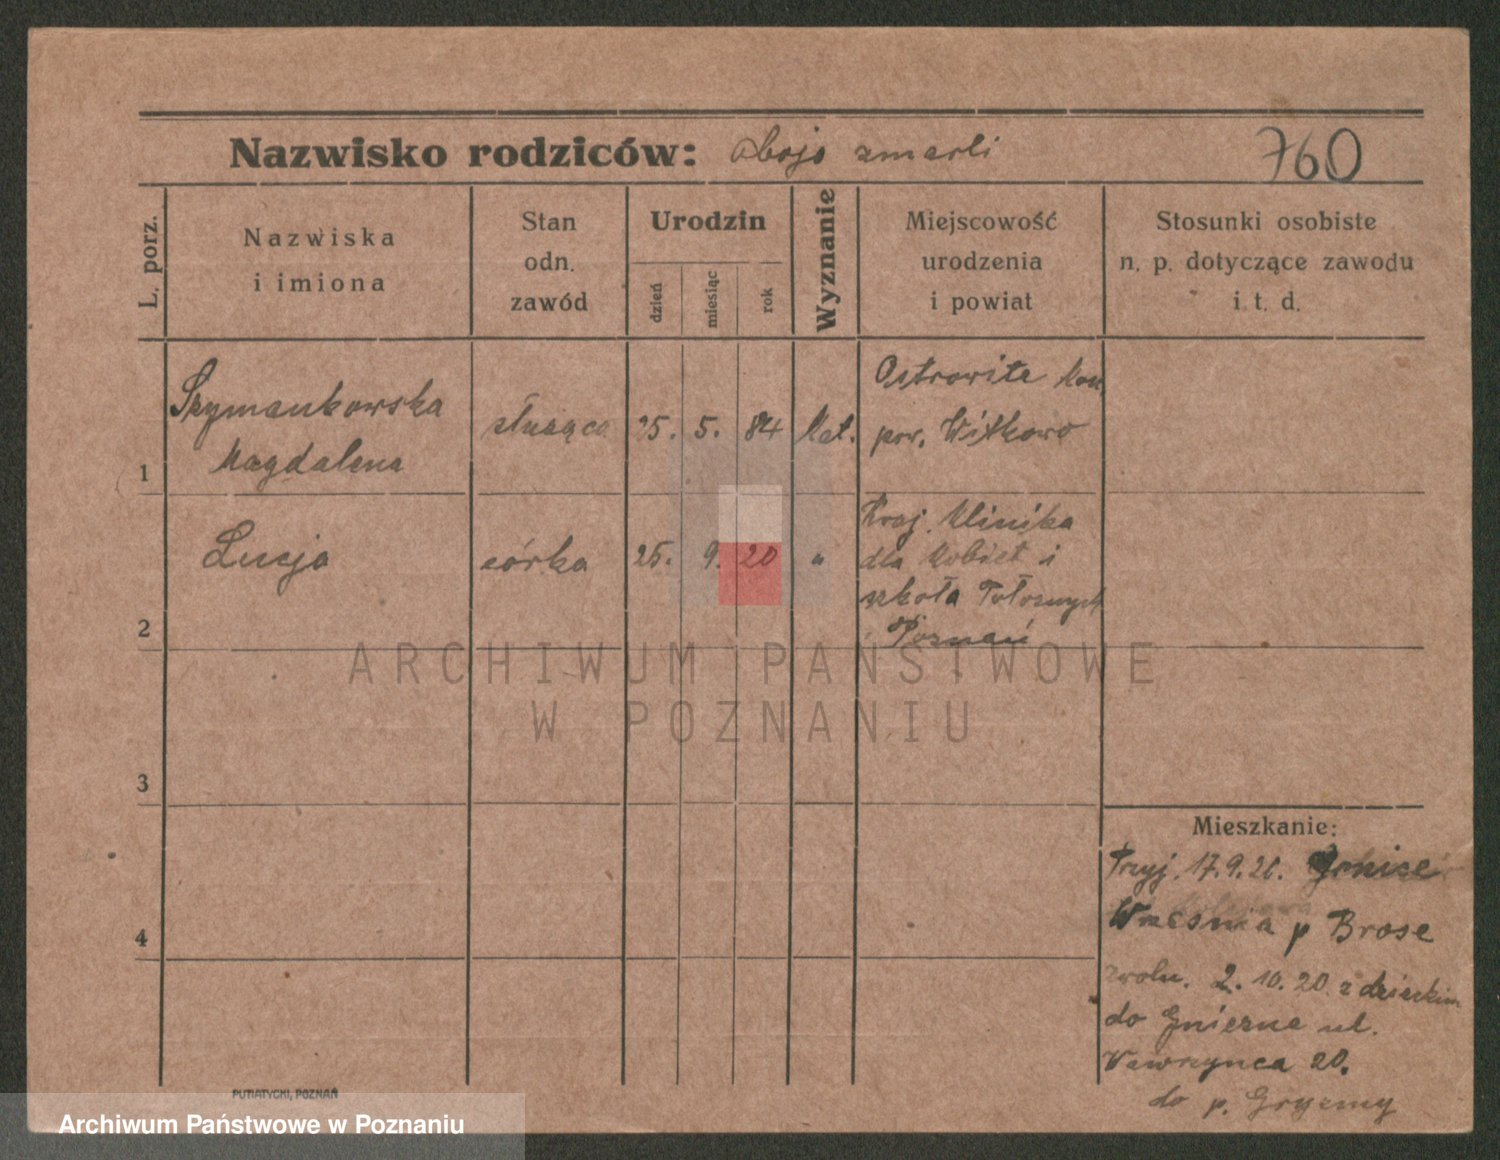 Nazwisko rodziców: oboje zmarli 760
L. porz.
Nazwiska
i imiona
Stan
odn.
zawód
Urodzin
dzień
miesiąc
rok
Wyznanie
Miejscowość
urodzenia
i powiat
Stosunki osobiste
n. p. dotyczące zawodu
i. t. d.
1
Szymankowska
Magdalena
służąca
25. 5. 84
Kat.
Ostrowite
pow. Witkowo
2
Lucja
córka
25. 9. 20
"
Kraj. Klinika
dla Kobiet i
szkoła Położnych
Poznań
3
4
Mieszkanie:
Przyj. 17.9.20.
Września p Brose
zwoln. 2.10.20 z dzieckiem
do Gniezna ul.
Wawrzynca 20.
do p. Gryczmy
PUTIATYCKI, POZNAŃ
ARCHIWUM PAŃSTWOWE
W POZNANIU
Archiwum Państwowe w Poznaniu